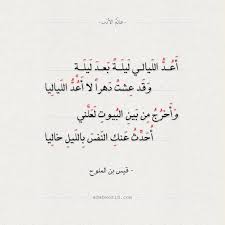 - عالم الأدب -
أَعُـدُّ اللَيالـي لَيلَـةً بَعـدَ لَيلَـةٍ
وَقَد عِشتُ دَهراً لا أَعُدُّ اللَيالِيا
وَأَخرُجُ مِن بَينِ البُيوتِ لَعَلَّني
أُحَدِّثُ عَنكِ النَفسَ بِاللَيلِ خالِيا
- قيس بن الملوح -
adabworld.com